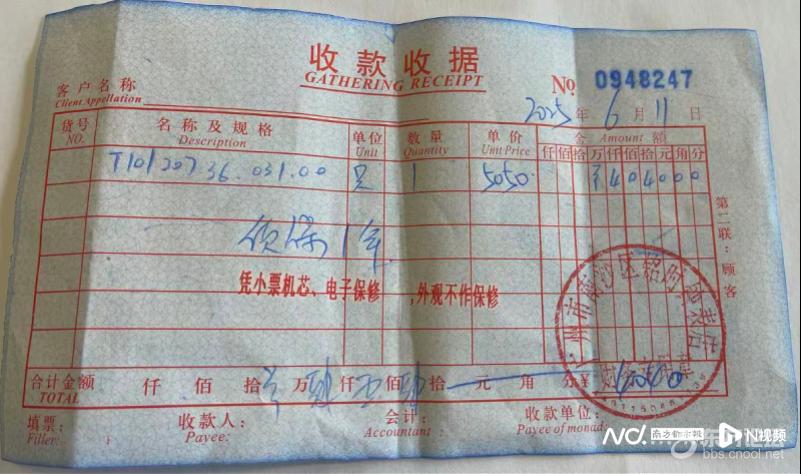 收款收据
GATHERING RECEIPT
客户名称
Client Appellation
No 0948247
2025年 6月 11日
货号 NO. 名称及规格 Description 单位 Unit 数量 Quantity 单价 Unit Price 金 Amount 额
仟佰拾万仟佰拾元角分
T101207.36.031.00 只 1 5050 ¥404000
保 1年
凭小票机芯、电子保修，外观不作保修
第二联：顾客
州市南沙区 店
合计金额 TOTAL 仟 佰 拾 万 仟 佰 拾 元 角 分
填票: Filler: 收款人: Payee: 会计: Accountant: 收款单位: Payee of monad:
N视频
南方都市报
bbs.cnool.net